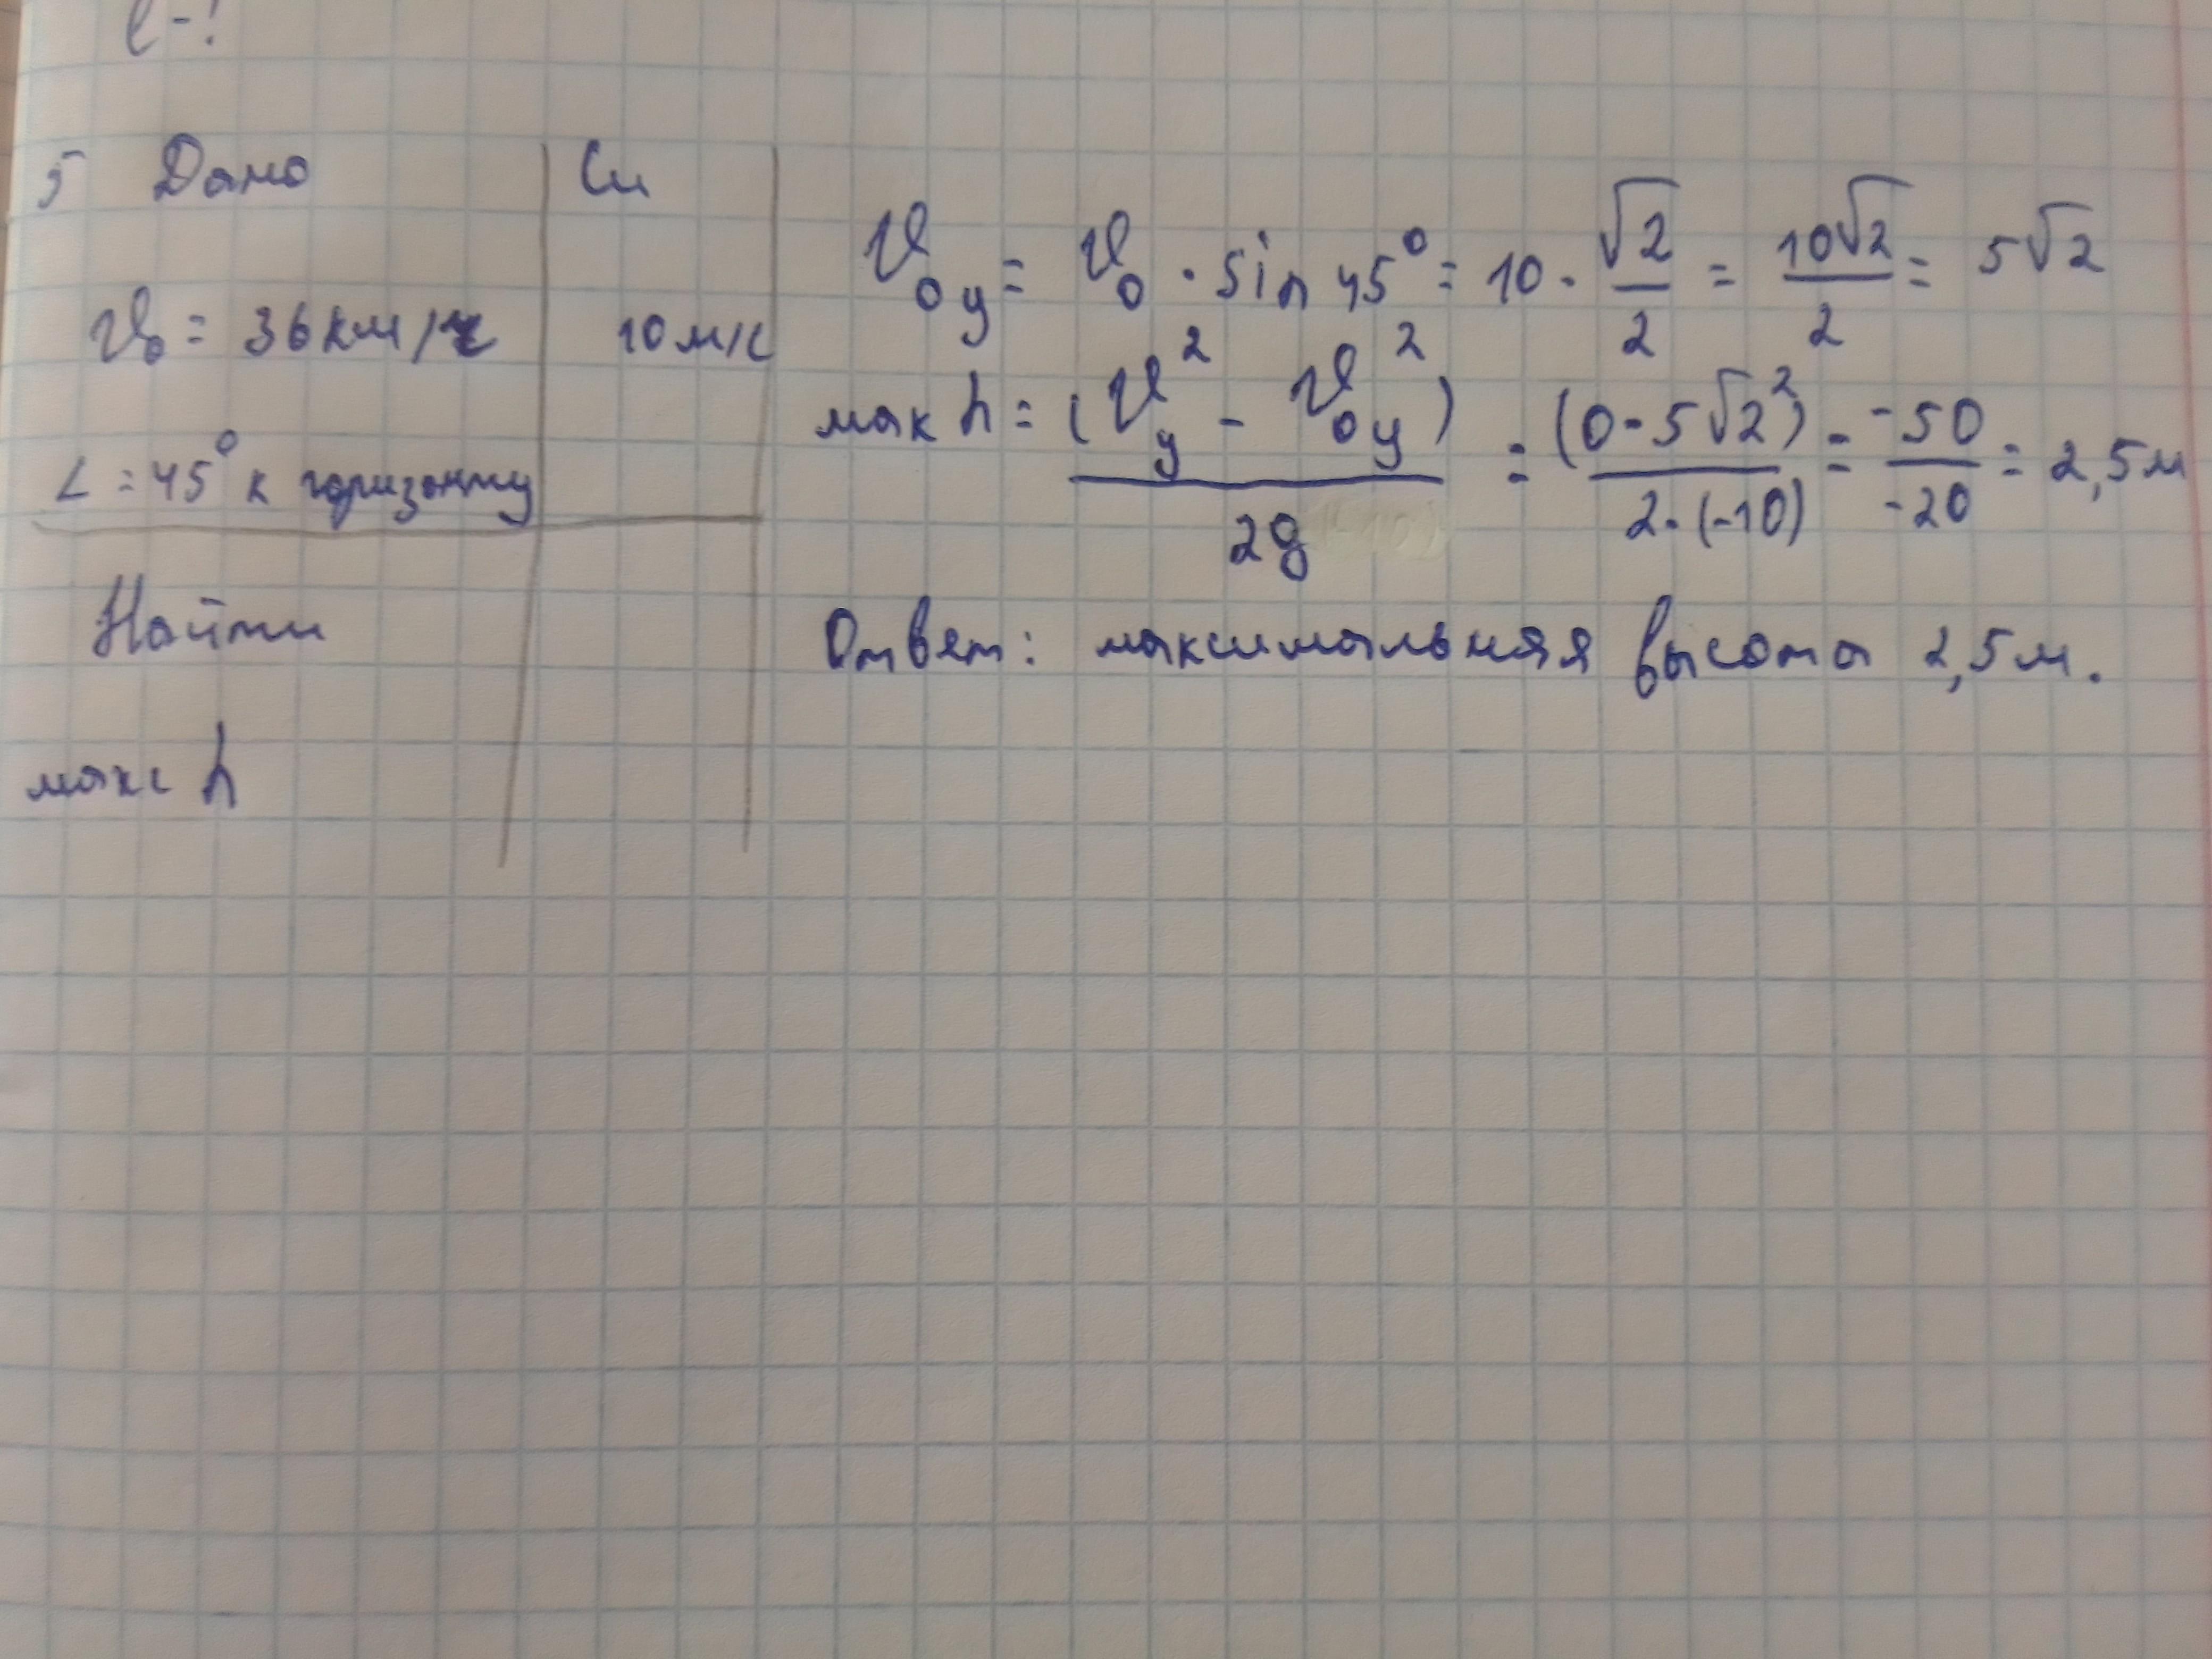 l - ?
5 Дано
Си
v₀ = 36 км/ч
10 м/с
∠ = 45° к горизонту
Найти
макс h
v₀y = v₀ · sin 45° = 10 · √2/2 = 10√2/2 = 5√2
мак h = (vy² - v₀y²)/2g = (0 - 5√2²)/2·(-10) = -50/-20 = 2,5м
Ответ: максимальная высота 2,5м.